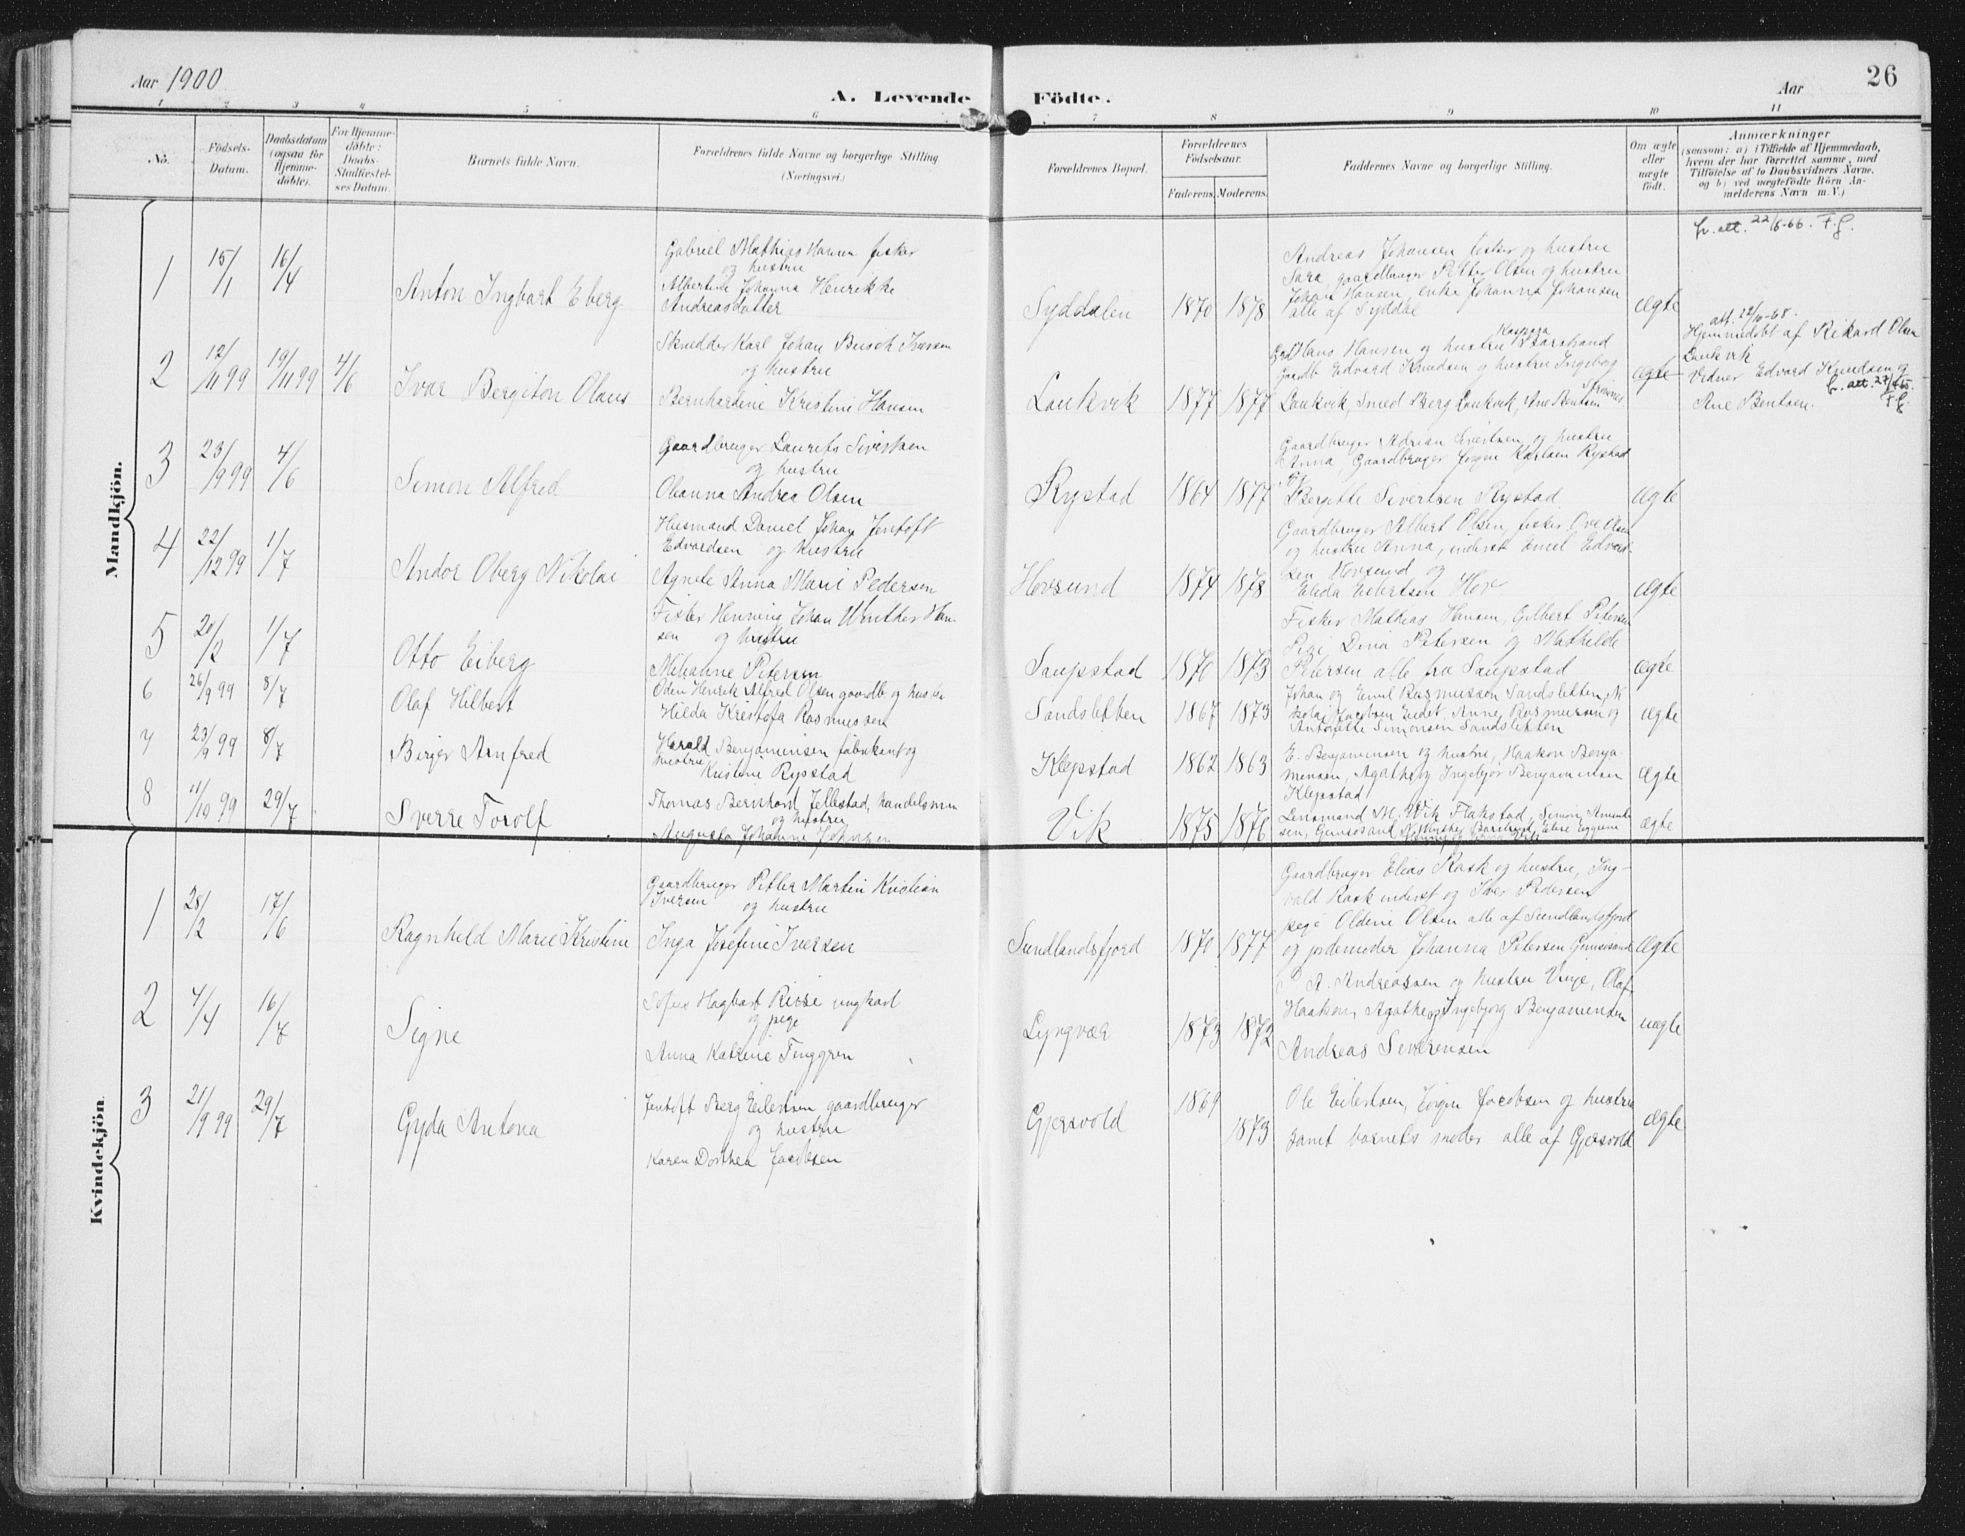 Aar 1900
A. Levende Födte.
Aar
26
1 2 3 4 5 6 7 8 9 10 11
No.
Födsels-Datum.
Daabsdatum (ogsaa for Hjemme-döbte).
For Hjemme-döbte: Daabs-Stadfæstel-ses Datum.
Barnets fulde Navn.
Forældrenes fulde Navne og borgerlige Stilling (Næringsvei.)
Forældrenes Bopæl.
Forældrenes Födselsaar.
Faderens. Moderens.
Faddernes Navne og borgerlige Stilling.
Om ægte eller uægte födt.
Anmærkninger
(saasom: a) i Tilfælde af Hjemmedaab,
hvem der har forrettet samme, med
Tilföielse af to Daabsvidners Navne,
og b) ved uægtefödte Börn An-
melderens Navn m. V.)
Mandkjön.
1
15/1
16/4
Anton Ingbart Eberg
Gabriel Mathias Hansen fisker
og hustru
Albertine Johanna Henrikke
Andreasdatter
Syddalen
1870
1878
Andreas Johansen fisker og hustru
Sara gaardbruger Petter Olsen og hustru
Johan Hansen, enke Johanna Johansen
alle af Syddal
ægte
fr. att. 22/6-66. F.G.
2
12/11 99
19/11 99
4/6
Ivar Bergiton Olaus
Skrædder Karl Johan Busch Iversen
og hustru
Bernhardine Kristine Hansen
Laukvik
1877
1877
Hans Hansen og hustru Kaspara Barstrand
Gaardb Edvard Knudsen og hustru Ingeborg
Strømnes
Laukvik, Smed Berg Laukvik, Ane Bentsen
ægte
att. 12/6-68.
Hjemmedøbt af Rikard Olsen
Laukvik
Vidner Edvard Knudsen og
Ane Bentsen.
3
23/9 99
4/6
Simon Alfred
Gaardbruger Laurits Sivertsen
og hustru
Oleanna Andrea Olsen
Rystad
1864
1877
Gaardbruger Adrian Sivertsen og hustru
Anna, Gaardbruger Jørgen Karlsen Rystad
Bergitte Sivertsen Rystad
ægte
4
22/12 99
1/7
Andor Oberg Nikolai
Husmand Daniel Johan Jentoft
Edvardsen og hustru
Agnete Anna Marie Pedersen
Hovsund
1874
1878
Gaardbruger Albert Olsen, fisker Ove Olsen
og hustru Anna, inderst Emil Edvard-
sen Hovsund og
Elida Eilertsen Hov
ægte
5
20/2
1/7
Otto Eiberg
Fisker Henning Johan Winther Han-
sen og hustru
Nilianne Petersen
Saupstad
1870
1873
Fisker Mathias Hansen, Gilbert Petersen
Pige Dina Petersen og Mathilde
Petersen alle fra Saupstad
ægte
6
26/9 99
8/7
Olaf Hilbert
Oden Henrik Alfred Olsen gaardb og hustru
Hilda Kristofa Rasmussen
Sandsletten
1867
1873
Johan og Emil Rasmussen Sandsletten, Ni-
kolai Jacobsen Eidet, Anne Rasmussen og
Antonette Simonsen Sandsletten
ægte
7
23/9 99
8/7
Birger Arnfred
Harald Benjaminsen fabrikant og
hustru
Kristine Rystad
Klepstad
1862
1863
E. Benjaminsen og hustru, Haakon Benja-
minsen, Agathe og Ingebjør Benjaminsen
Klepstad
ægte
8
11/10 99
29/7
Sverre Torolf
Thomas Bernhard Jellestad, handelsman
og hustru
Augusta Johanne Johnsen
Vik
1875
1876
Lensmand M. Wik Flakstad, Simon Amund-
sen, Gimsøsand
ægte
Kvindekjön.
1
28/2
17/6
Ragnhild Marie Kristine
Gaardbruger Petter Martin Kristian
Iversen og hustru
Inga Josefine Iversen
Sundlandsfjord
1870
1877
Gaardbruger Elias Rask og hustru, Ing-
vald Rask inderst og Iver Pedersen
pige Oldine Olsen alle af Sundlandsfjord
og jordemoder Johanna Petersen Gimsøsand
ægte
2
4/4
16/7
Signe
Hagbart Risse ungkarl
og pige
Anna Katrine Finggren
Lyngvær
1873
1872
A. Andreassen og hustru Vinje, Olaf,
Haakon, Agathe og Ingebjorg Benjaminsen
Andreas Severensen
uægte
3
21/9 99
29/7
Gyda Antona
Jentoft Berg Eilertsen, gaardbruger
og hustru
Karen Dorthea Jacobsen
Gjersvold
1869
1873
Ole Eilertsen, Jørgen Jacobsen og hustru
samt barnets moder alle af Gjersvold
ægte